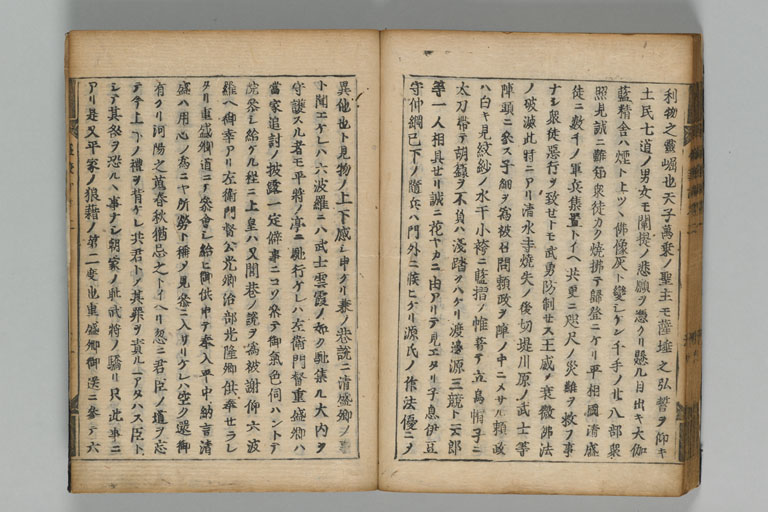 利物之靈崛也天子萬乗ノ聖主モ薩埵之弘誓ヲ仰キ
土民七道ノ男女モ闡提ノ悲願ヲ憑クリ懸ル目出キ大伽
藍精舎ハ煙ト上ツヽ佛像灰ト變シケレ千手ノ廿八部衆
照見誠ニ難
衆徒カク焼拂テ歸登ニケリ平相國清盛
徒ニ數千ノ軍兵集置トイヘ共更ニ咫尺ノ災難ヲ救フ事
ナシ衆徒悪行ヲ致セトモ武勇防制セス王威ノ衰微佛法
ノ破滅此特ニアリ清水寺焼失ノ後切堤川原ノ武士等
陣頭ニ参ス子細ヲ為被召問頼政ヲ陣ノ中ニメサル頼政
ハ白キ見紋紗ノ水干小袴ニ藍摺ノ帷著テ立烏帽子ニ
太刀帶テ胡籙ヲ不負ハ淺踏ヲハケリ渡邊源三競ト云郎
等一人相具セリ誠ニ花ヤカニ由アリテ見エタリ子息伊豆
守仲綱已下ノ隨兵ハ門外ニ候ヒケリ源氏ノ作法優ニメ
異他也ト見物ノ上下感シ申ケリ兼ノ巷説ニ清盛卿ノ事
ト聞エケレハ六波羅ニハ武士雲霞ノ如ク馳集ル大内ヲ
守護スル者モ平將ノ亭ニ馳行ケレハ左衛門督重盛卿ハ
當家追討ノ披露一定僻事ニコソ參テ御氣色伺ハントテ
院參シ給ケル程ニ上皇ハ又閭巷ノ説ヲ為被謝仰六波
羅ヘ御幸アリ左衛門督公光卿治部光隆卿供奉セラレ
タリ重盛卿道ニテ參會シ給ヒ御供申テ奉入平中納言清
盛ハ用心ノ為ニヤ所勞ト稱メ見參ニ入サリケレハ空ク還御
有ケリ河陽之蒐春秋猶忌之トイヘリ忽ニ君臣ノ道ヲ忘
テ今上下ノ禮ヲ背ケレ共君トノ其罪ヲ責ルニアタハス臣ト
シテ其咎ヲ恐ルヽ事ナシ朝家ノ耻武將ノ驕リ只此事ニ
アリ是又平家ノ狼藉ノ第二度也重盛卿御送ニ參テ六